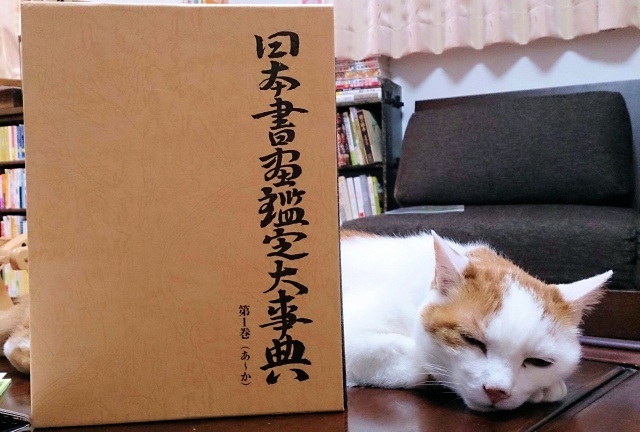 日本書画鑑定大事典
第1巻（あ～か）